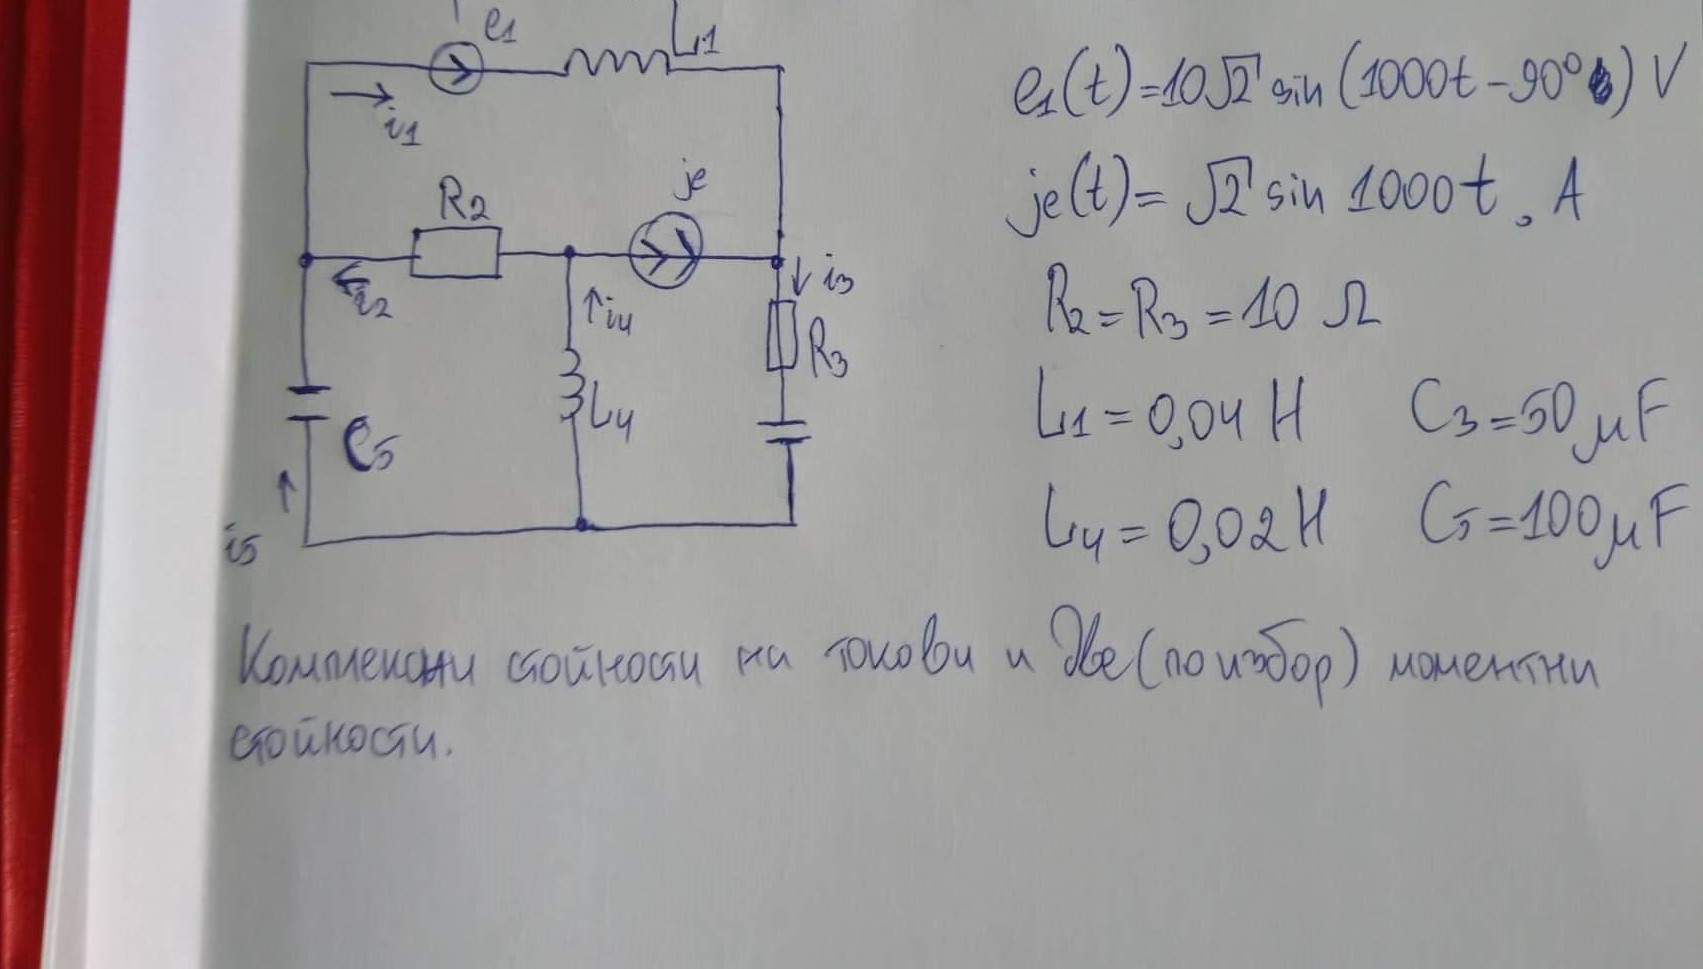 e1
L1
i1
R2
je
i2
i4
i3
R3
L4
C5
i5
e1(t)=10√2 sin(1000t-90°) V
je(t)=√2 sin 1000t, A
R2=R3=10 Ω
L1=0,04 H C3=50μF
L4=0,02H C5=100μF
Комплексни стойности на токови и две (по избор) моментни
стойности.